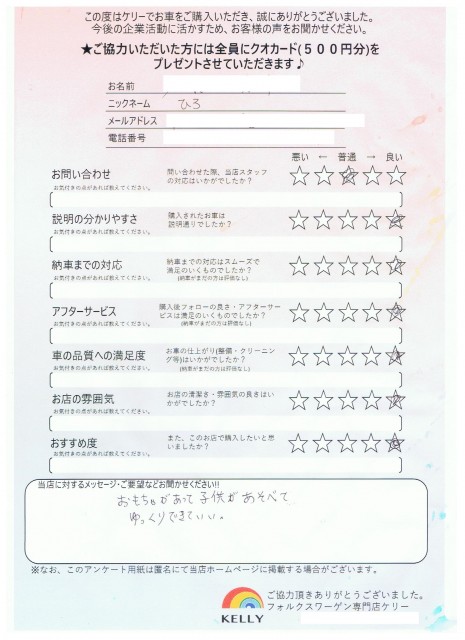 この度はケリーでお車をご購入いただき、誠にありがとうございました。
今後の企業活動に活かすため、お客様の声をお聞かせください。
★ご協力いただいた方には全員にクオカード(500円分)を
プレゼントさせていただきます♪
お名前
ニックネーム ひろ
メールアドレス
電話番号
悪い ← 普通 → 良い
お問い合わせ 問い合わせた際、当店スタッフ
の対応はいかがでしたか? ☆☆☆☆☆
お気付きの点があれば教えてください。
説明の分かりやすさ 購入されたお車は
説明通りでしたか? ☆☆☆☆☆
お気付きの点があれば教えてください。
納車までの対応 納車までの対応はスムーズで
満足のいくものでしたか? ☆☆☆☆☆
お気付きの点があれば教えてください。 (納車がまだの方は評価なし)
アフターサービス 購入後フォローの良さ・アフターサー
ビスは満足のいくものでしたか? ☆☆☆☆☆
お気付きの点があれば教えてください。 (納車がまだの方は評価なし)
車の品質への満足度 お車の仕上がり(整備・クリーニン
グ等)はいかがでしたか? ☆☆☆☆☆
お気付きの点があれば教えてください。 (納車がまだの方は評価なし)
お店の雰囲気 お店の清潔さ・雰囲気の良さはい
かがでしたか? ☆☆☆☆☆
お気付きの点があれば教えてください。
おすすめ度 また、このお店で購入したいと思
いましたか? ☆☆☆☆☆
お気付きの点があれば教えてください。
当店に対するメッセージ・ご要望などお聞かせください!!
おもちゃがあって子供があそべて
ゆっくりできていい。
※なお、このアンケート用紙は匿名にて当店ホームページに掲載する場合がございます。
ご協力頂きありがとうございました。
フォルクスワーゲン専門店ケリー
KELLY